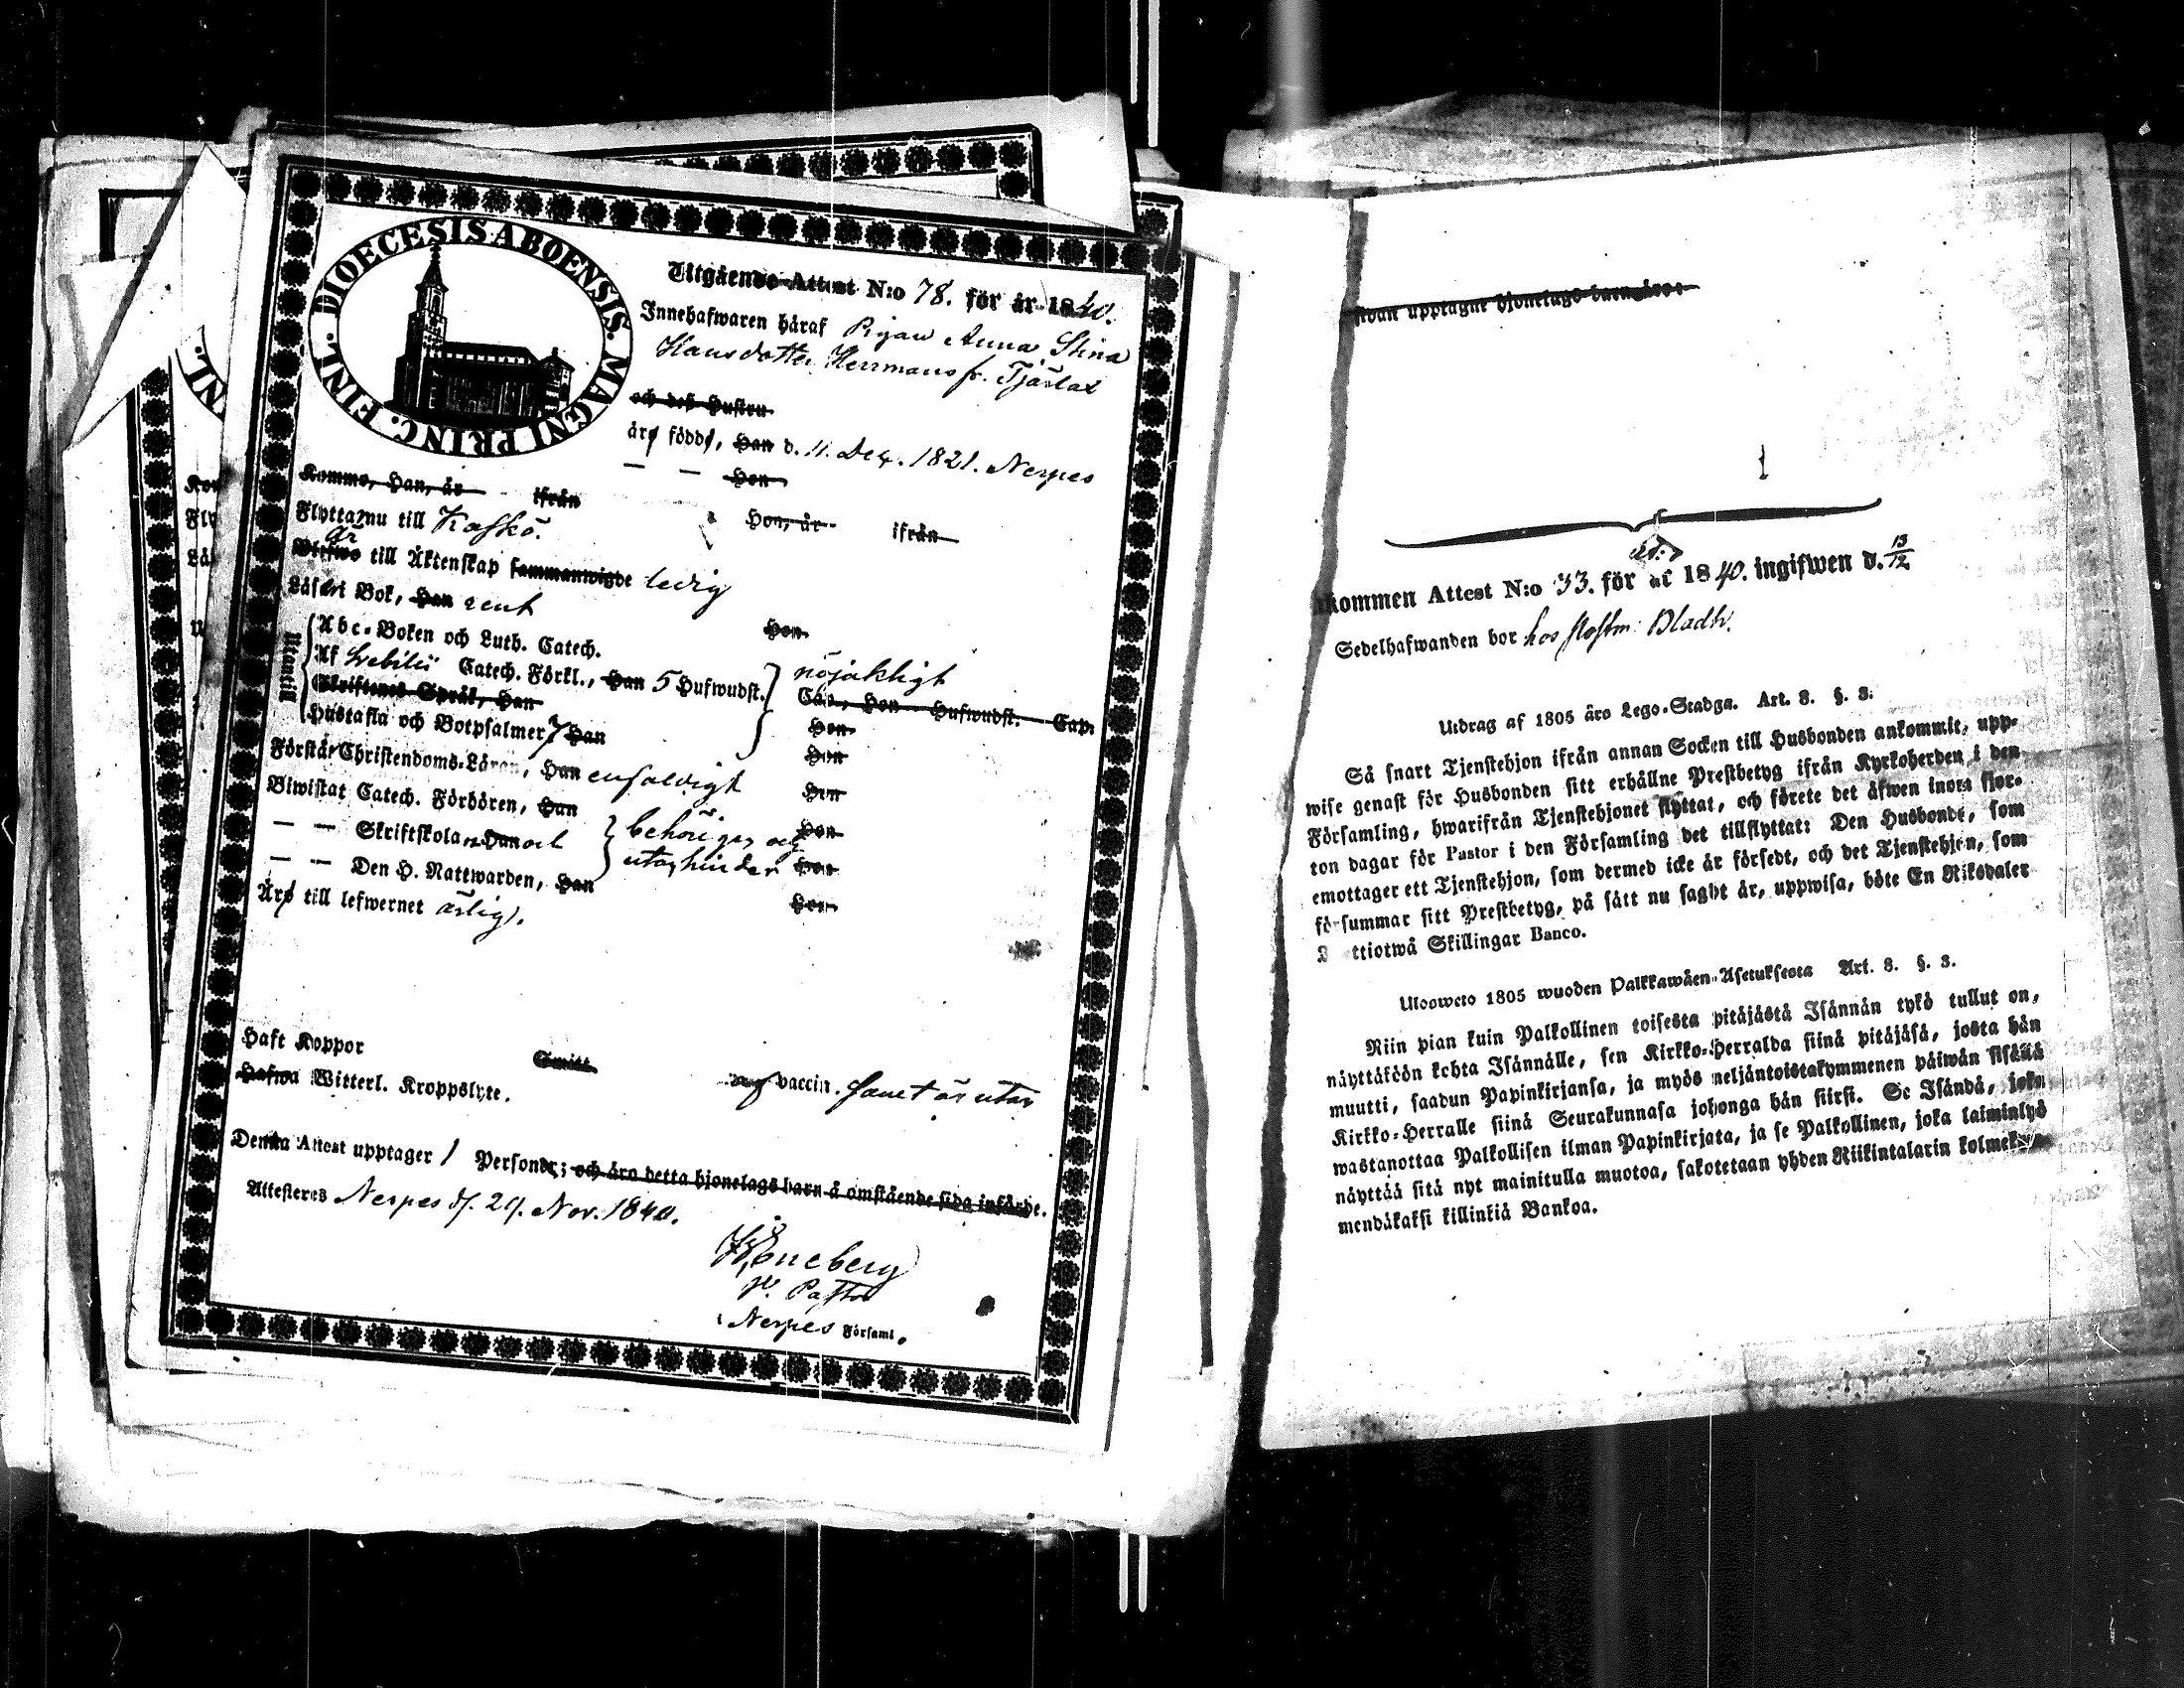 DIOECESIS ABOENSIS. MAGNI PRINC. FINL.
Utgående Attest N:o 78. för år 1840.
Innehafwaren häraf Pigan Anna Stina
Hansdotter Herrmans fr. Tjärlax
och deß Hustru
äro född, Han d. 11. Dec. 1821. Nerpes
— — Hon
Komme, Han, år ifrån Hon, år ifrån
Flyttar nu till Kaskö.
är
till Äktenskap sammanwigde ledig
Läser i Bok, Han rent Hon
Utantill
Abc-Boken och Luth. Catech.
Af Svebilii Catech. Förkl., Han 5 Hufwudst. nöjaktigt
Cap., Hon Hufwudst. Cap.
Skriftenes Språk, Han Hon
Hustafla och Botpsalmer, Han Hon
Förstår Christendoms-Läran, Han enfaldigt Hon
Biwistat Catech. Förhören, Han Hon
— — Skriftskolan Han och behörigen och Hon
— — Den H. Nattwarden, Han utan hinder Hon
Äro till lefwernet ärlig.
Haft Koppor vaccin. samt är utan
Hafwa Witterl. Kroppslyte.
Denna Attest upptager 1 Personer; och äro detta hjonelags barn å omstående sida införde.
Attesteras Nerpes d. 29. Nov. 1840.
Eneberg
Pastor
i Nerpes Församl.
upptagne hjonelags barn äro:
kommen Attest N:o 33. för år 1840. ingifwen d. 13/12
Sedelhafwanden bor hos Bladh.
Utdrag af 1805 års Lego-Stadga. Art. 8. §. 3.
Så snart Tjenstehjon ifrån annan Socken till Husbonden ankommit, upp-
wise genast för Husbonden sitt erhållne Prestbetyg ifrån Kyrkoherden i den
Församling, hwarifrån Tjenstehjonet flyttat, och förete det äfwen inom fjor-
ton dagar för Pastor i den Församling det tillflyttat: Den Husbonde, som
emottager ett Tjenstehjon, som dermed icke är försedt, och det Tjenstehjon, som
försummar sitt Prestbetyg, på sätt nu sagdt är, uppwisa, böte En Riksdaler
Trettiotwå Skillingar Banco.
Ulosweto 1805 wuoden Palkkawäen-Asetuksesta Art. 8. §. 3.
Niin pian kuin Palkollinen toisesta pitäjästä Isännän tykö tullut on,
näyttäköön kohta Isännälle, sen Kirkko-Herralda siinä pitäjäsä, josta hän
muutti, saadun Papinkirjansa, ja myös neljäntoistakymmenen päiwän sisällä
Kirkko-Herralle siinä Seurakunnasa johonga hän siirsi. Se Isändä, joka
wastanottaa Palkollisen ilman Papinkirjata, ja se Palkollinen, joka laiminlyö
näyttää sitä nyt mainitulla muotoa, sakotetaan yhden Riikintalarin kolmek
mendäkaksi killinkiä Bankoa.